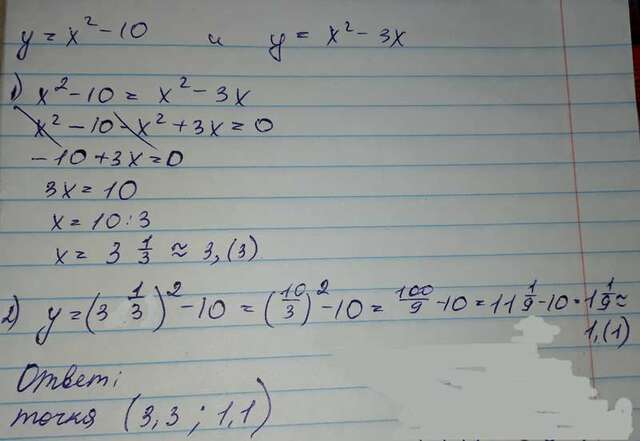 y = x² - 10 и y = x² - 3x
1) x² - 10 = x² - 3x
x² - 10 - x² + 3x = 0
- 10 + 3x = 0
3x = 10
x = 10 : 3
x = 3 1/3 ≈ 3,(3)
2) y = (3 1/3)² - 10 = (10/3)² - 10 = 100/9 - 10 = 11 1/9 - 10 = 1 1/9 ≈
1,(1)
Ответ:
точка (3,3 ; 1,1)